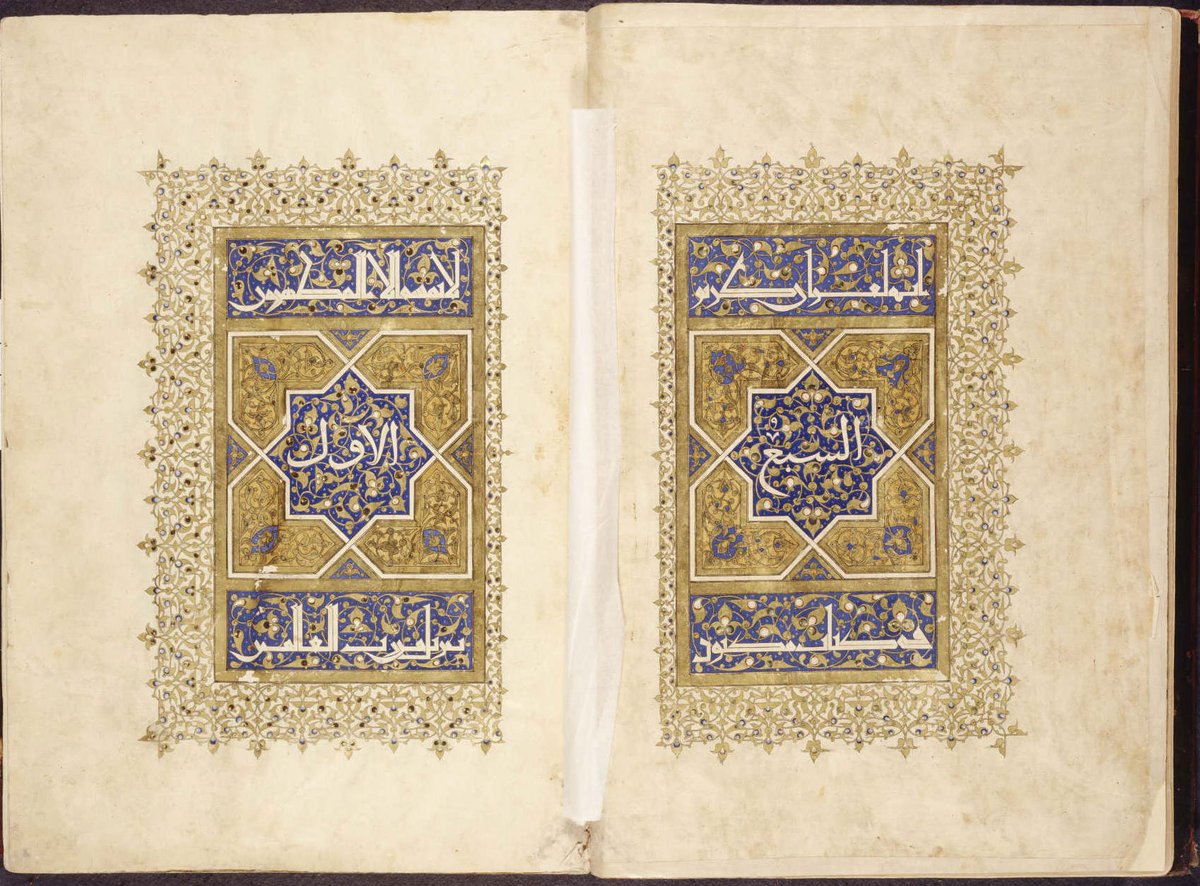 انه لقران كريم
السبع
في كتاب مكنون
لا يمسه الا المطهرون
الاول
تنزيل من رب العلمين